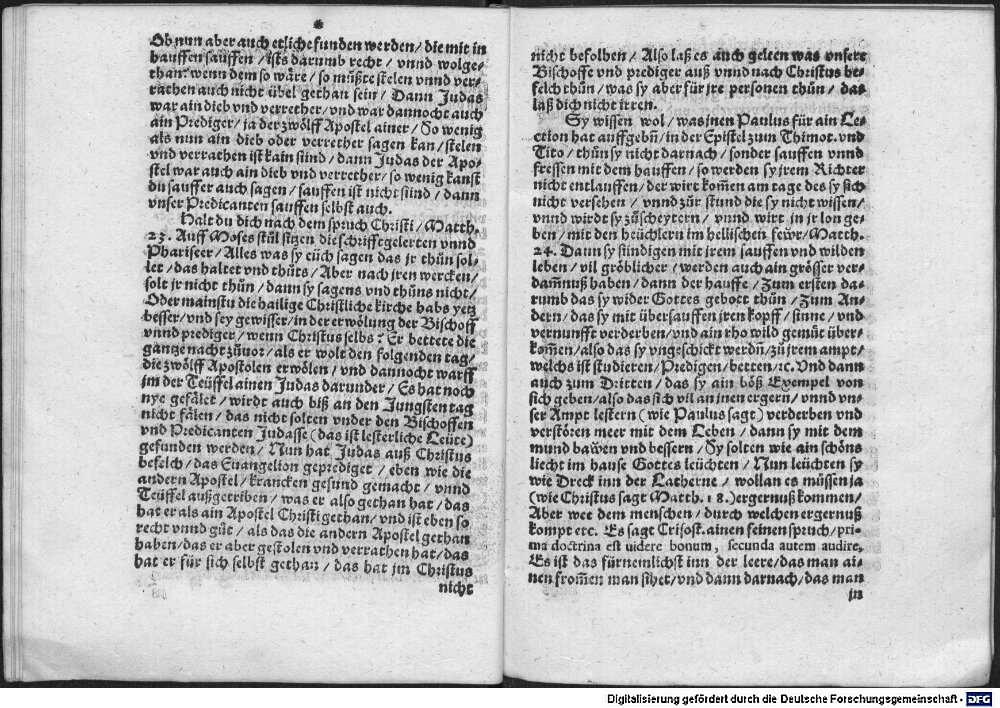 *
Ob nun aber auch etliche funden werden / die mit in
hauffen sauffen / ists darumb recht / vnnd wolge-
than? wenn dem so wäre / so müßte stelen vnnd ver-
rathen auch nicht übel gethan sein / Dann Judas
war ain dieb vnd verrether / vnd war dannocht auch
ain Prediger / ja der zwölff Apostel ainer / So wenig
als nun ain dieb oder verrether sagen kan / stelen
vnd verrathen ist kain sünd / dann Judas der Apo-
stel war auch ain dieb vnd verrether / so wenig kanst
du sauffer auch sagen / sauffen ist nicht sünd / dann
vnser Predicanten sauffen selbst auch.
Halt du dich nach dem spruch Christi / Matth.
23. Auff Moses stůl sitzen die schrifftgelerten vnnd
Phariseer / Alles was sy euch sagen das jr thůn sol-
let / das haltet vnd thůts / Aber nach jren wercken /
solt jr nicht thůn / dann sy sagens vnd thůns nicht /
Oder mainstu die hailige Christliche kirche habs yetz
besser / vnd sey gewisser / in der erwölung der Bischoff
vnnd prediger / wenn Christus selbs? Er bettete die
gantze nacht zůuor / als er wolt den folgenden tag /
die zwölff Apostolen erwölen / vnd dannocht warff
jm der Teüffel ainen Judas darunder / Es hat noch
nye gefälet / wirdt auch biß an den Jungsten tag
nicht fälen / das nicht solten vnder den Bischoffen
vnd Predicanten Judasse (das ist lesterliche Leüte)
gefunden werden / Nun hat Judas auß Christus
befelch / das Euangelion geprediget / eben wie die
andern Apostel / krancken gesund gemacht / vnnd
Teüffel außgetriben / was er also gethan hat / das
hat er als ain Apostel Christi gethan / vnd ist eben so
recht vnnd gůt / als das die andern Apostel gethan
haben / das er aber gestolen vnd verrathen hat / das
hat er für sich selbst gethan / das hat jm Christus
nicht
nicht befolhen / Also laß es auch geleen was vnsere
Bischoffe vnd prediger auß vnnd nach Christus be-
felch thůn / was sy aber für jre personen thůn / das
laß dich nicht irren.
Sy wissen wol / was jnen Paulus für ain Le-
ction hat auffgebñ / in der Epistel zum Thimot. vnd
Tito / thůn sy nicht darnach / sonder sauffen vnnd
fressen mit dem hauffen / so werden sy jrem Richter
nicht entlauffen / der wirt kom̃en am tage des sy sich
nicht versehen / vnnd zůr stund die sy nicht wissen /
vnnd wirdt sy zůscheytern / vnnd wirt jn jr lon ge-
ben / mit den heüchlern im hellischen fewr / Matth.
24. Dann sy sündigen mit jrem sauffen vnd wilden
leben / vil gröblicher / werden auch ain grösser ver-
dam̃nuß haben / dann der hauffe / Zum ersten da-
rumb das sy wider Gottes gebott thůn / Zum An-
dern / das sy mit übersauffen jren kopff / sinne / vnd
vernunfft verderben / vnd ain rho wild gemüt über-
kom̃en / also das sy vngeschickt werdñ / zů jrem ampt /
welchs ist studieren / Predigen / betten / ꝛc. Vnd dann
auch zum Dritten / das sy ain böß Exempel von
sich geben / also das sich vil an jnen ergern / vnnd vn-
ser Ampt lestern (wie Paulus sagt) verderben vnd
verstören meer mit dem Leben / dann sy mit dem
mund bawen vnd bessern / Sy solten wie ain schöns
liecht im hause Gottes leüchten / Nun leüchten sy
wie Dreck inn der Latherne / wollan es müssen ja
(wie Christus sagt Matth. 18.) ergernuß kommen /
Aber wee dem menschen / durch welchen ergernuß
kompt etc. Es sagt Crisost. ainen feinen spruch / pri-
ma doctrina est uidere bonum, secunda autem audire,
Es ist das fürnemlichst inn der leere / das man ai-
nen from̃en man sihet / vnd dann darnach / das man
jn
Digitalisierung gefördert durch die Deutsche Forschungsgemeinschaft - DFG